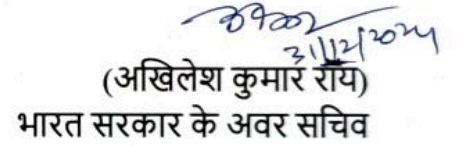 31/12/2024
(अखिलेश कुमार रॉय)
भारत सरकार के अवर सचिव